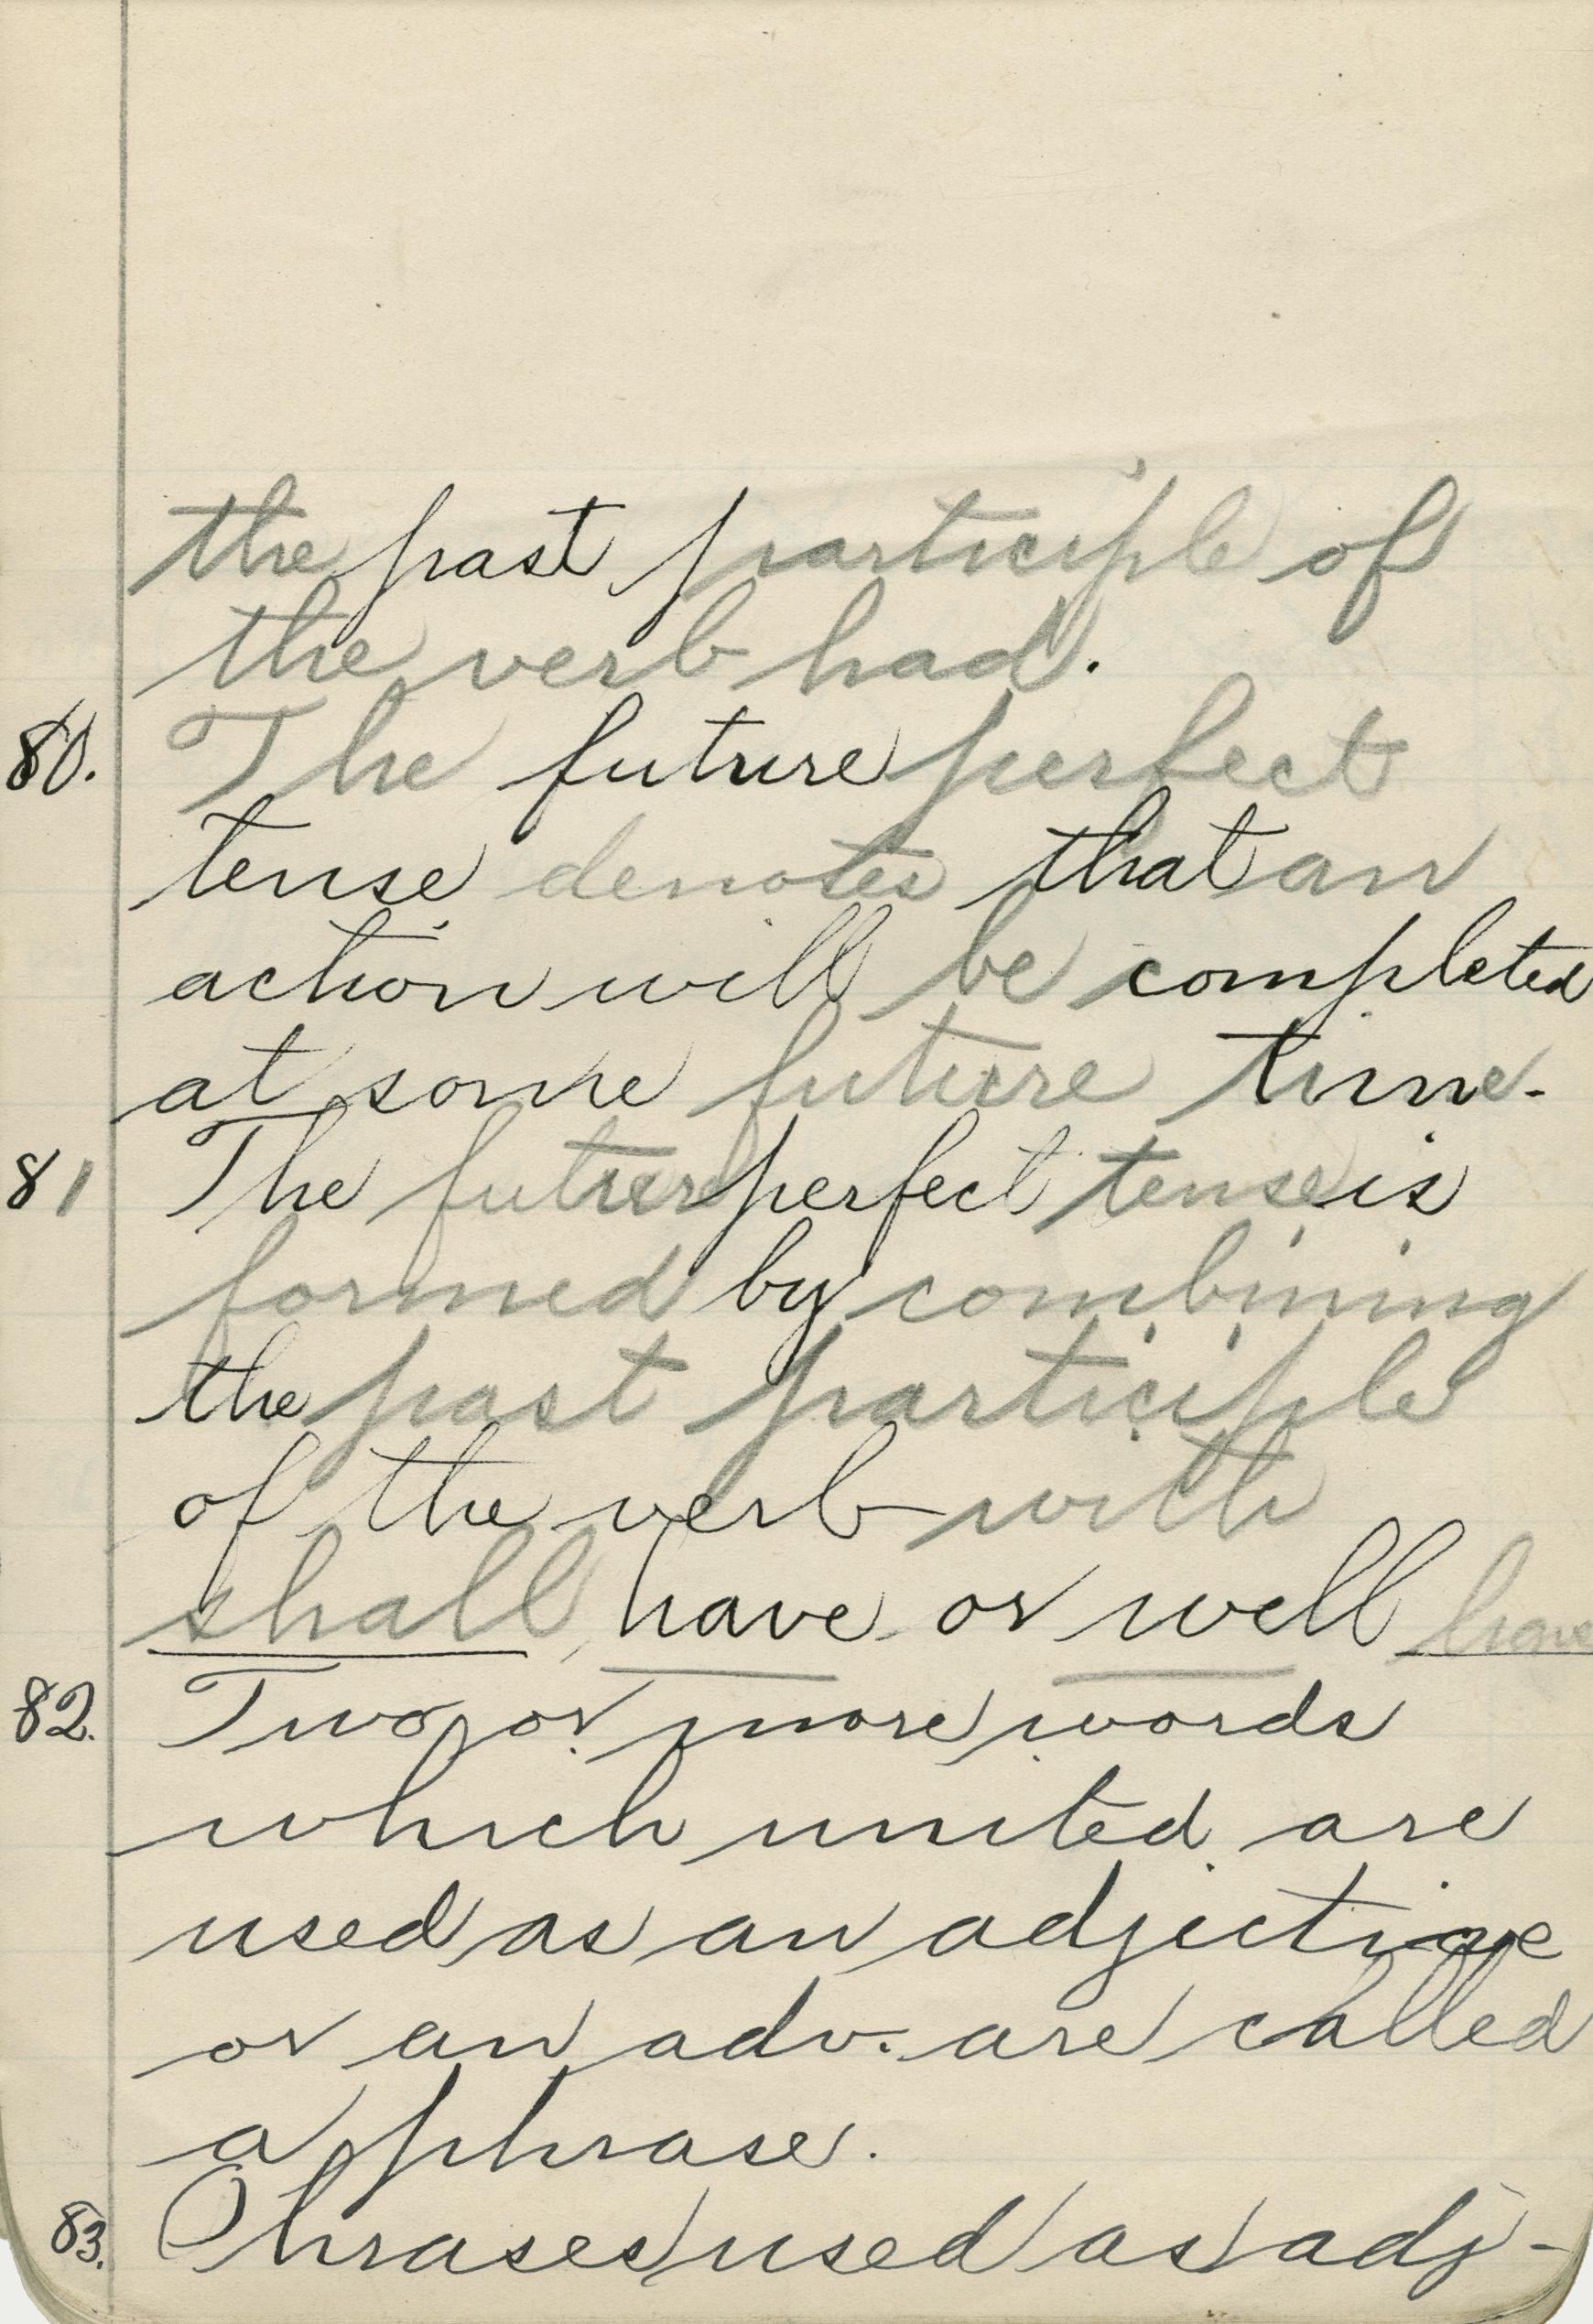 the past participle of
the verb had.
80. The future perfect
tense denotes that an
action will be completed
at some future time.
81 The future perfect tense is
formed by combining
the past participle
of the verb with
shall have or well have
82. Two or more words
which united are
used as an adjective
or an adv. are called
a phrase.
83. Phrases used as adj-